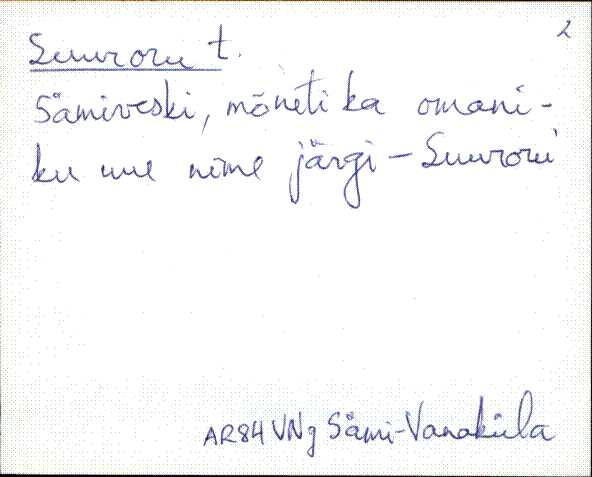 2
Suuroru t.
Sämiveski, mõneti ka omani-
ku uue nime järgi - Suuroru
AR84 VNg Sämi-Vanaküla